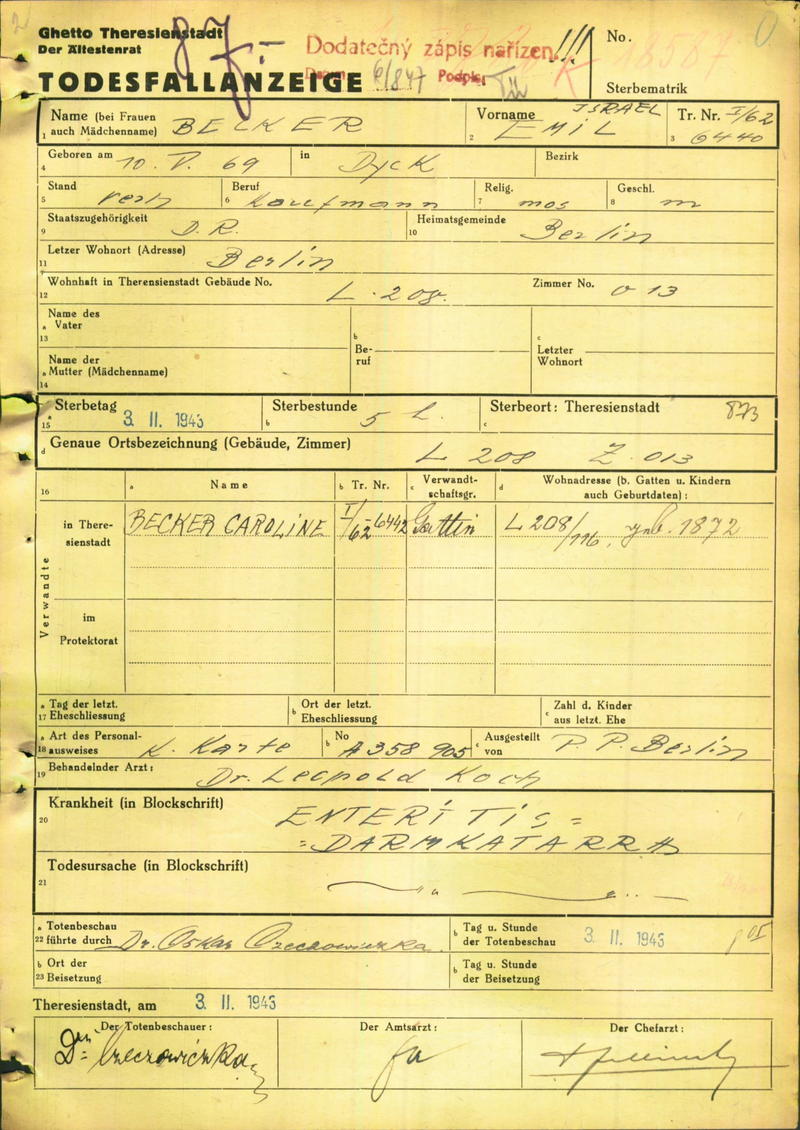 Ghetto Theresienstadt
Der Ältestenrat
87.-
Dodatečný zápis nařízen!!!
Datum 6/847 Podpis
No. 18587
TODESFALLANZEIGE
Sterbematrik
Name (bei Frauen auch Mädchenname) BECKER
1
Vorname EMIL ISRAEL
2
Tr. Nr. I/62
3 6440
Geboren am 10. V. 69
4
in Dyck
Bezirk
Stand verh
5
Beruf Kaufmann
6
Relig. mos
7
Geschl. m
8
Staatszugehörigkeit D. R.
9
Heimatsgemeinde Berlin
10
Letzer Wohnort (Adresse) Berlin
11
Wohnhaft in Therensienstadt Gebäude No. L. 208. Zimmer No. 013
12
Name des
a Vater
13
b Beruf
c Letzter Wohnort
Name der
a Mutter (Mädchenname)
14
Sterbetag 3. II. 1943
15 a
Sterbestunde 5 h.
b
Sterbeort: Theresienstadt 873
c
d Genaue Ortsbezeichnung (Gebäude, Zimmer) L 208 Z. 013
16
a Name
b Tr. Nr.
c Verwandtschaftsgr.
d Wohnadresse (b. Gatten u. Kindern auch Geburtdaten):
Verwandte
in Theresienstadt
BECKER CAROLINE I/62-6442 Gattin L 208/116, geb. 1872
im Protektorat
a Tag der letzt.
17 Eheschliessung
b Ort der letzt. Eheschliessung
c Zahl d. Kinder aus letzt. Ehe
a Art des Personal-
18 ausweises K. Karte
b No A 358 905
c Ausgestellt von P. P. Berlin
19 Behandelnder Arzt: Dr. Leopold Koch
Krankheit (in Blockschrift) ENTERITIS =
20
= DARMKATARRH
Todesursache (in Blockschrift)
21
a Totenbeschau
22 führte durch Dr. Oskar Czechowiczka
b Tag u. Stunde der Totenbeschau 3. II. 1943
b Ort der
23 Beisetzung
b Tag u. Stunde der Beisetzung
Theresienstadt, am 3. II. 1943
Der Totenbeschauer:
Dr. Czeczowiczka
Der Amtsarzt:
Der Chefarzt: